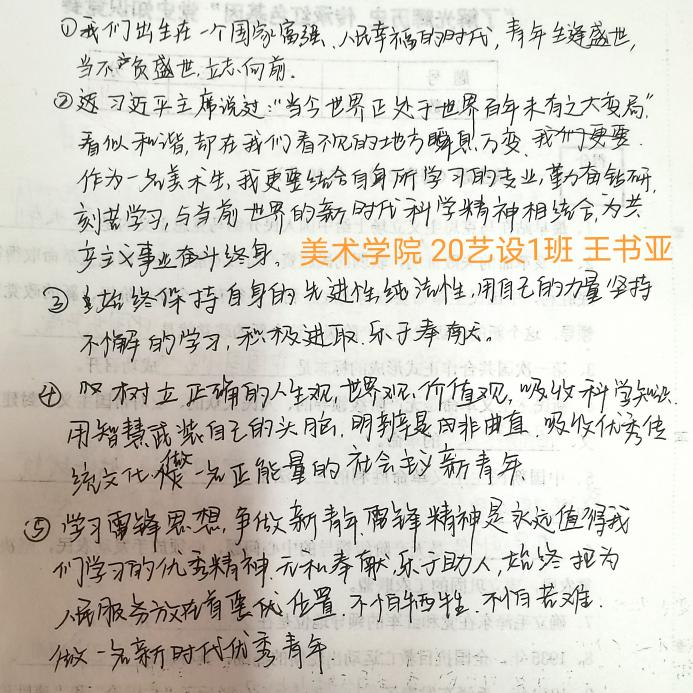 ①我们出生在一个国家富强、人民幸福的时代,青年生逢盛世,
当不负盛世,立志向前.
② 习近平主席说过:“当今世界正处于世界百年未有之大变局”,
看似和谐,却在我们看不见的地方瞬息万变.我们更要
作为一名美术生,我更要结合自身所学习的专业,勤奋钻研,
刻苦学习,与当前世界的新时代科学精神相结合,为共
产主义事业奋斗终身。 美术学院 20艺设1班 王书亚
③ 始终保持自身的先进性,纯洁性,用自己的力量坚持
不懈的学习,积极进取.乐于奉献。
④ 树立正确的人生观,世界观、价值观,吸收科学知识.
用智慧武装自己的头脑,明辨是非曲直.吸收优秀传
统文化.做一名正能量的社会主义新青年
⑤ 学习雷锋思想,争做新青年,雷锋精神是永远值得我
们学习的优秀精神.无私奉献,乐于助人,始终把为
人民服务放在首要位置.不怕牺牲.不怕苦难.
做一名新时代优秀青年